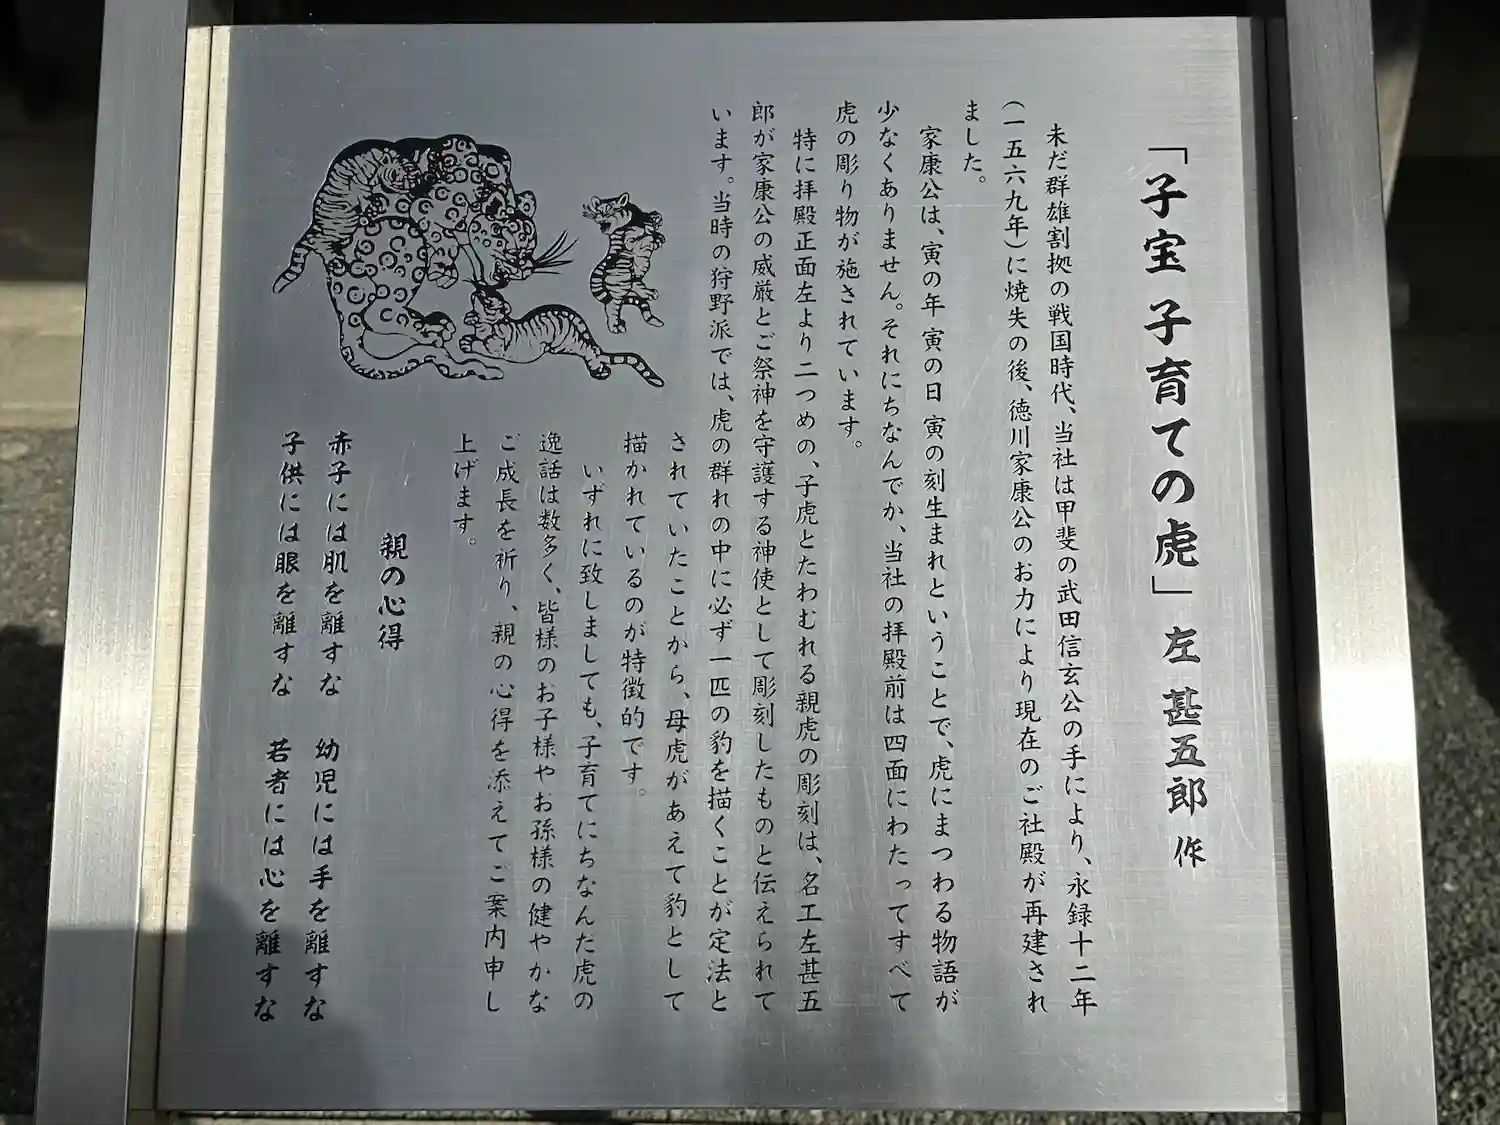 「子宝 子育ての虎」左 甚五郎 作
未だ群雄割拠の戦国時代、当社は甲斐の武田信玄公の手により、永録十二年
(一五六九年)に焼失の後、徳川家康公のお力により現在のご社殿が再建され
ました。
家康公は、寅の年 寅の日 寅の刻生まれということで、虎にまつわる物語が
少なくありません。それにちなんでか、当社の拝殿前は四面にわたってすべて
虎の彫り物が施されています。
特に拝殿正面左より二つめの、子虎とたわむれる親虎の彫刻は、名工左甚五
郎が家康公の威厳とご祭神を守護する神使として彫刻したものと伝えられて
います。当時の狩野派では、虎の群れの中に必ず一匹の豹を描くことが定法と
されていたことから、母虎があえて豹として
描かれているのが特徴的です。
いずれに致しましても、子育てにちなんだ虎の
逸話は数多く、皆様のお子様やお孫様の健やかな
ご成長を祈り、親の心得を添えてご案内申し
上げます。
親の心得
赤子には肌を離すな 幼児には手を離すな
子供には眼を離すな 若者には心を離すな